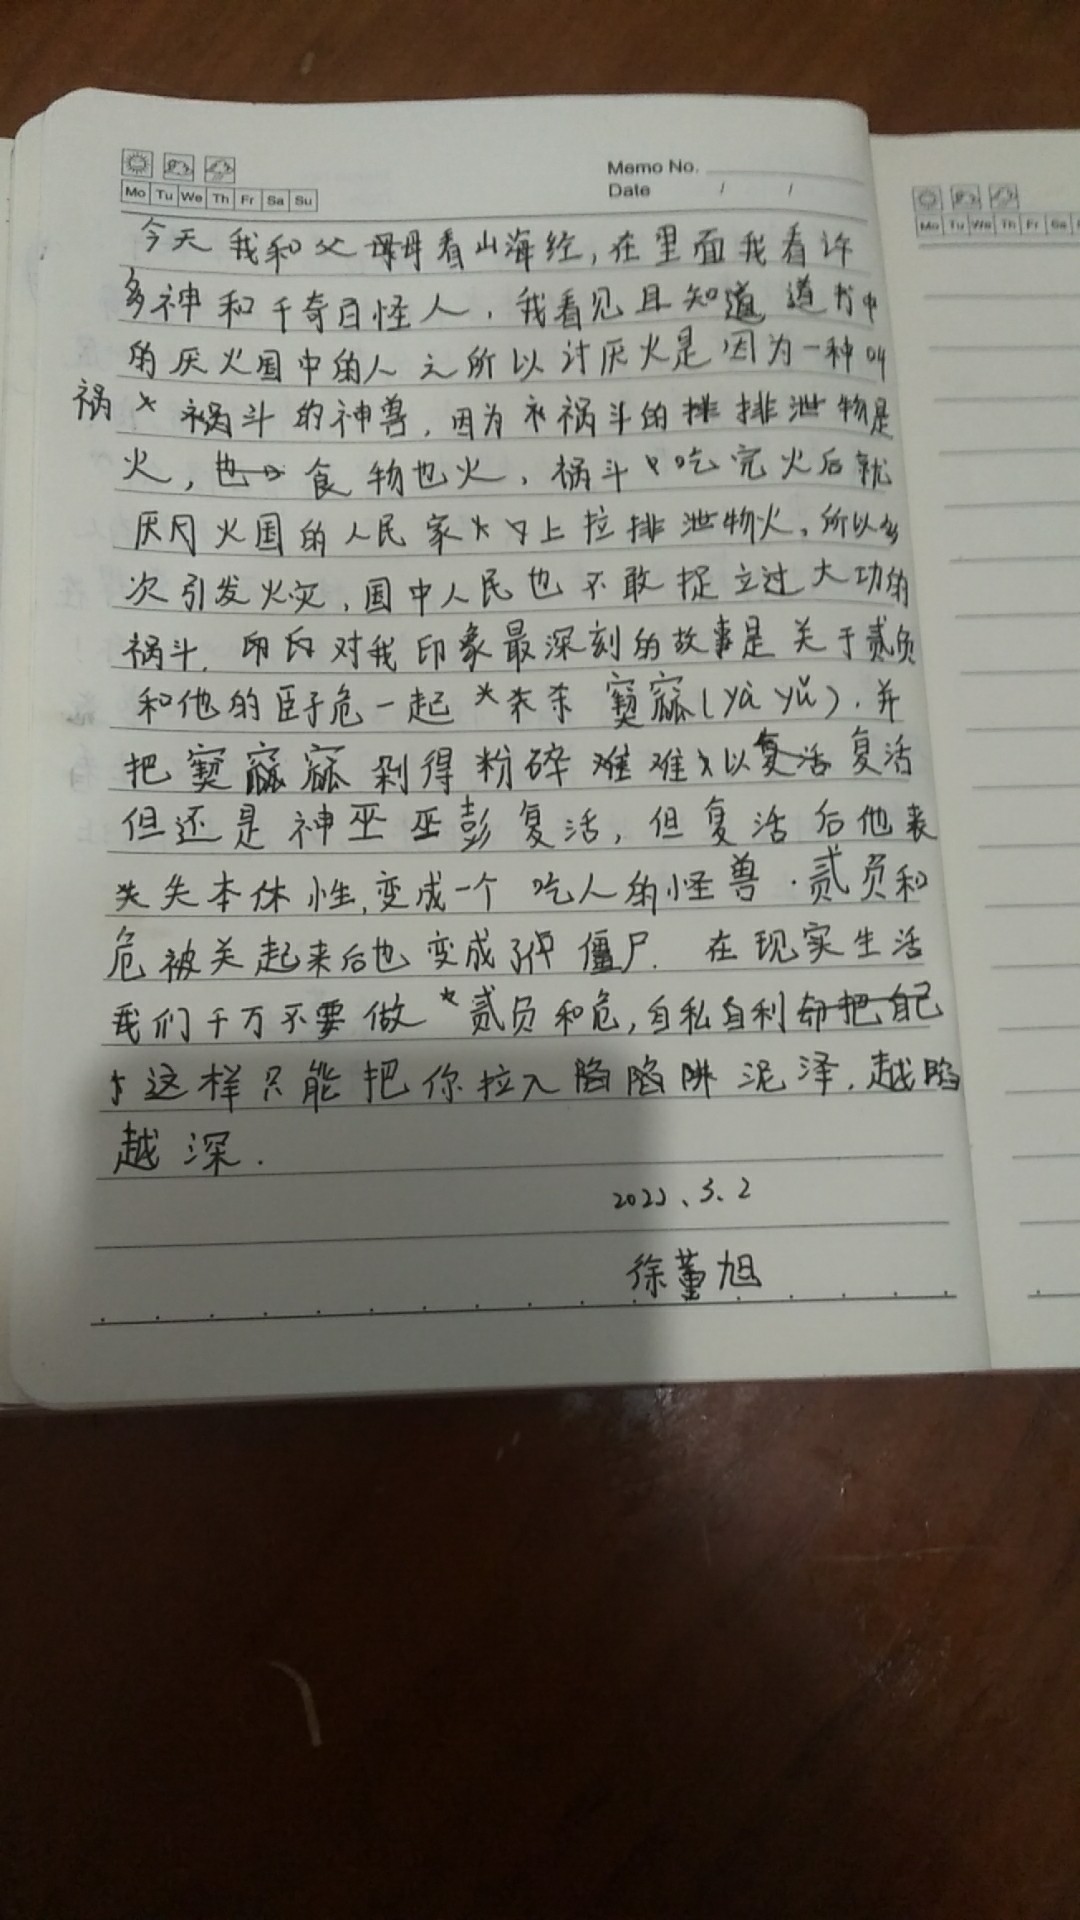 Memo No.
Mo Tu We Th Fr Sa Su
Date / /
Mo Tu We Th Fr Sa
今天我和父母母看山海经,在里面我看许
多神和千奇百怪人,我看见且知道道书中
的厌火国中的人之所以讨厌火是因为一种叫
祸 祸斗的神兽,因为祸斗的排排泄物是
火,也食物也火,祸斗吃完火后就
厌火国的人民家上拉排泄物火。所以多
次引发火灾,国中人民也不敢捉立过大功的
祸斗.印对我印象最深刻的故事是关于贰负
和他的臣子危一起杀窫窳(yà yǔ),并
把窫窳窳剁得粉碎难难以复活复活
但还是神巫巫彭复活,但复活后他表
失失本体性,变成一个吃人的怪兽.贰负和
危被关起来后也变成了僵尸.在现实生活
我们千万不要做贰负和危,自私自利却把自己
这样只能把你拉入陷陷阱泥泽,越陷
越深.
2022、3、2
徐董旭